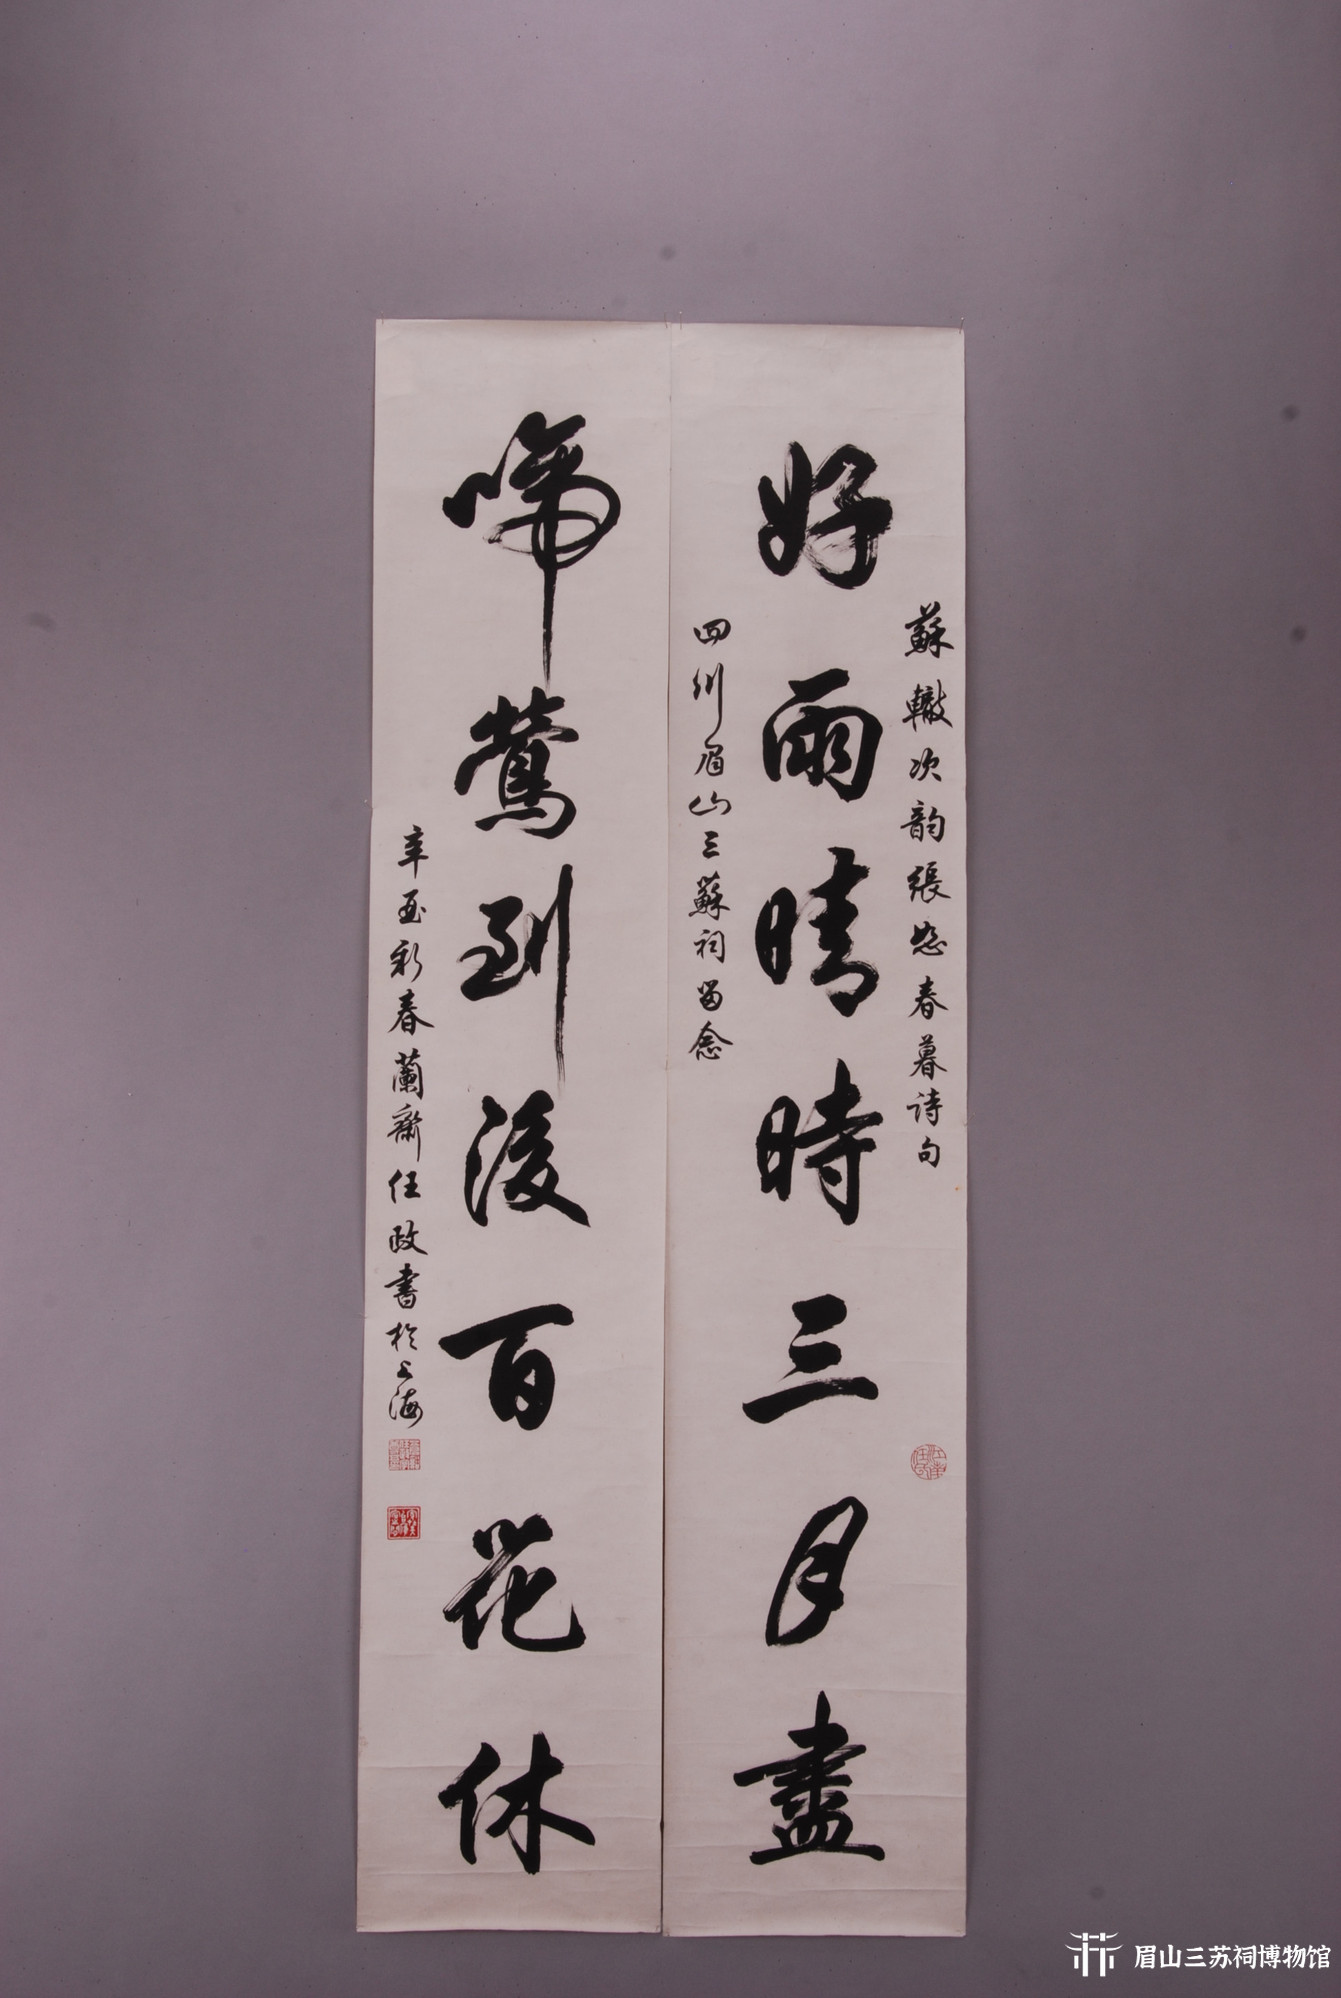 蘇轍次韵張恕春暮诗句
好雨晴時三月盡
四川眉山三蘇祠留念
啼鶯到後百花休
辛酉新春蘭齋任政書於上海
眉山三苏祠博物馆